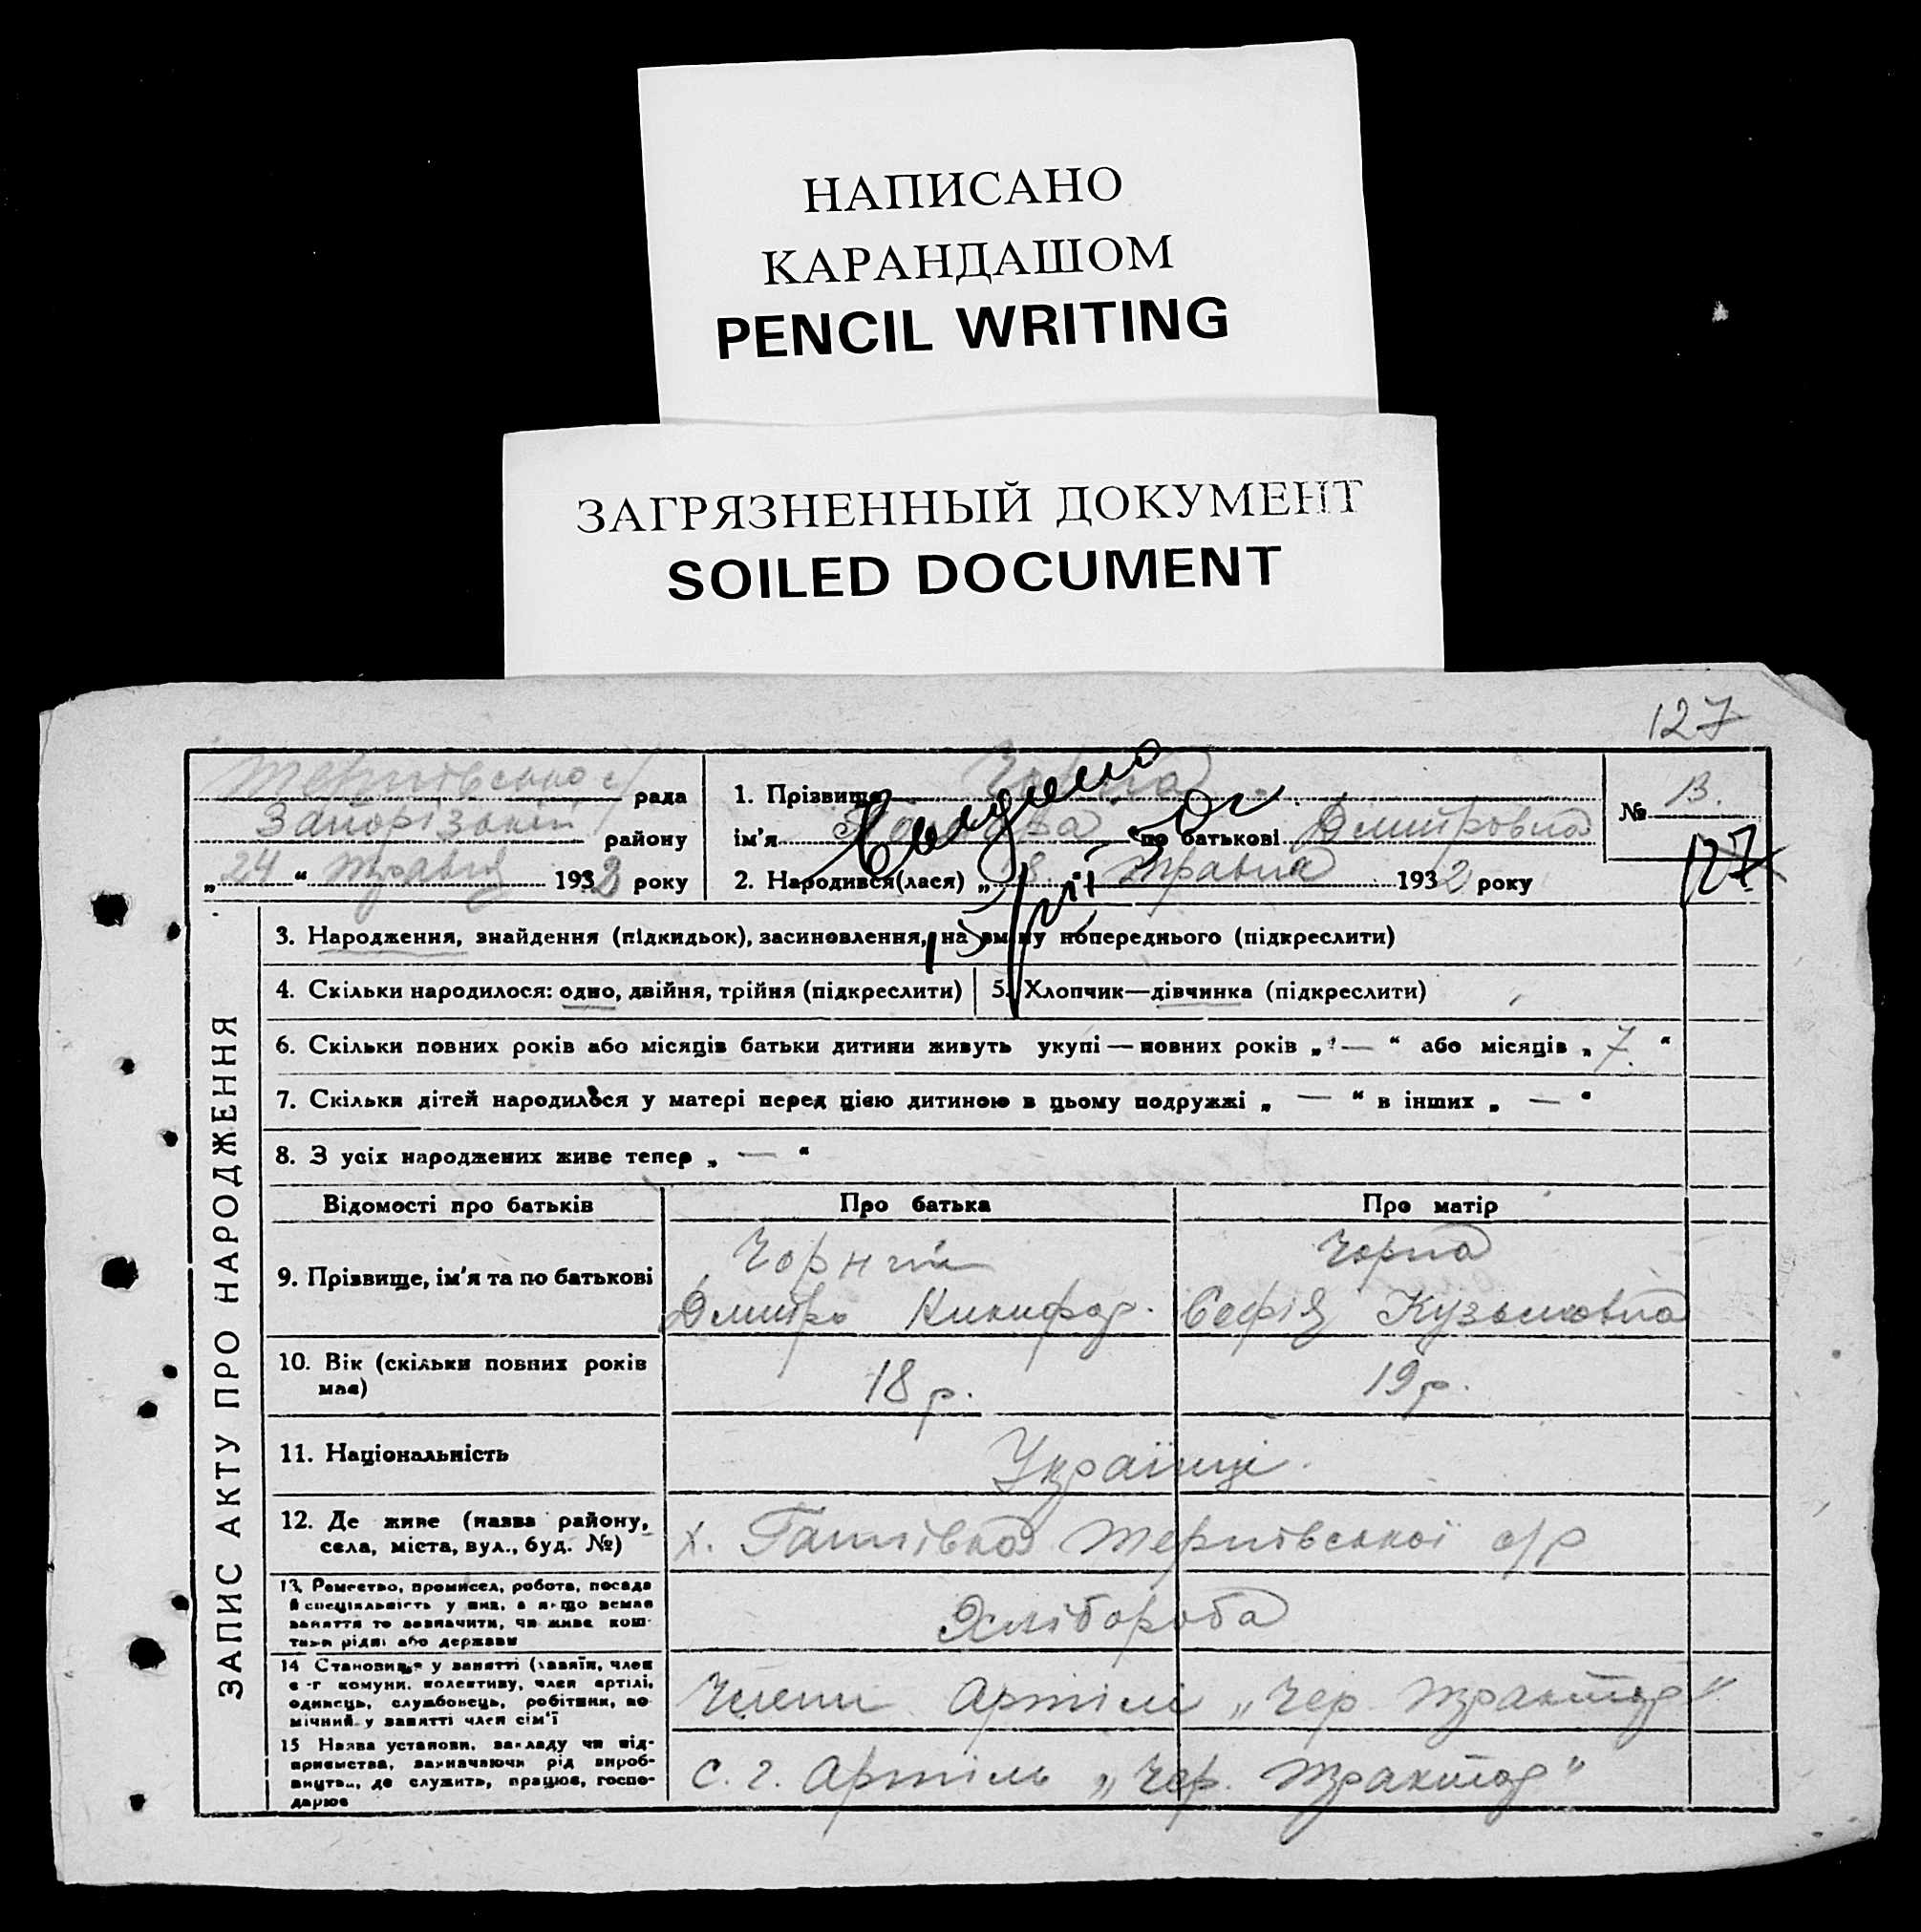 НАПИСАНО
КАРАНДАШОМ
PENCIL WRITING
ЗАГРЯЗНЕННЫЙ ДОКУМЕНТ
SOILED DOCUMENT
127
рада
Запорізький району
„24“ травня 1932 року
1. Прізвище Чорна
ім'я по батькові Дмитровна
2. Народився(лася) „18“ травня 1932 року
№ 13.
127
ЗАПИС АКТУ ПРО НАРОДЖЕННЯ
3. Народження, знайдення (підкидьок), засиновлення, на зміну попереднього (підкреслити)
4. Скільки народилося: одно, двійня, трійня (підкреслити)
5. Хлопчик—дівчинка (підкреслити)
6. Скільки повних років або місяців батьки дитини живуть укупі — повних років „ — “ або місяців „ 7 “
7. Скільки дітей народилося у матері перед цією дитиною в цьому подружжі „ — “ в інших „ — “
8. З усіх народжених живе тепер „ — “
Відомості про батьків Про батька Про матір
9. Прізвище, ім'я та по батькові
Чорний
Дмитро Никифор.
Чорна
Софія Кузьмовна
10. Вік (скільки повних років має)
18 р. 19 р.
11. Національність
Українці.
12. Де живе (назва району, села, міста, вул., буд. №)
х. с/р
13. Ремество, промисел, робота, посада й спеціяльність у них, а якщо немає заняття то зазначити, чи живе коштами рідні або держави
Хлібороба
14 Становище у занятті (хазяїн, член с-г комуни, колективу, член артілі, одинець, службовець, робітник, помічний у занятті член сім'ї
Члени Артілі „Чер. трактор“
15 Назва установи, закладу чи підприємства, зазначаючи рід виробництва, де служить, працює, господарює
С. г. Артіль „Чер. трактор“